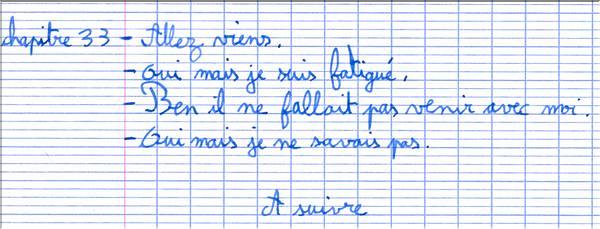 chapitre 33 - Allez viens.
- oui mais je suis fatigué.
- Ben il ne fallait pas venir avec moi.
- Oui mais je ne savais pas.
A suivre